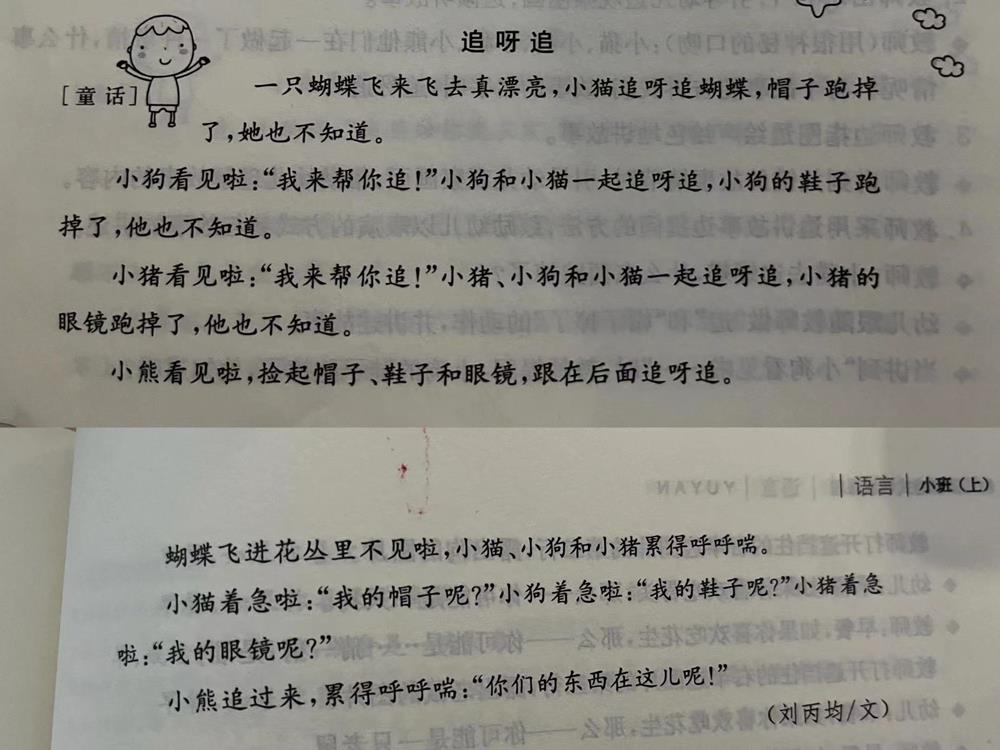 追呀追
[童话]
一只蝴蝶飞来飞去真漂亮,小猫追呀追蝴蝶,帽子跑掉
了,她也不知道。
小狗看见啦:“我来帮你追!”小狗和小猫一起追呀追,小狗的鞋子跑
掉了,他也不知道。
小猪看见啦:“我来帮你追!”小猪、小狗和小猫一起追呀追,小猪的
眼镜跑掉了,他也不知道。
小熊看见啦,捡起帽子、鞋子和眼镜,跟在后面追呀追。
语言 小班(上)
蝴蝶飞进花丛里不见啦,小猫、小狗和小猪累得呼呼喘。
小猫着急啦:“我的帽子呢?”小狗着急啦:“我的鞋子呢?”小猪着急
啦:“我的眼镜呢?”
小熊追过来,累得呼呼喘:“你们的东西在这儿呢!”
(刘丙均/文)